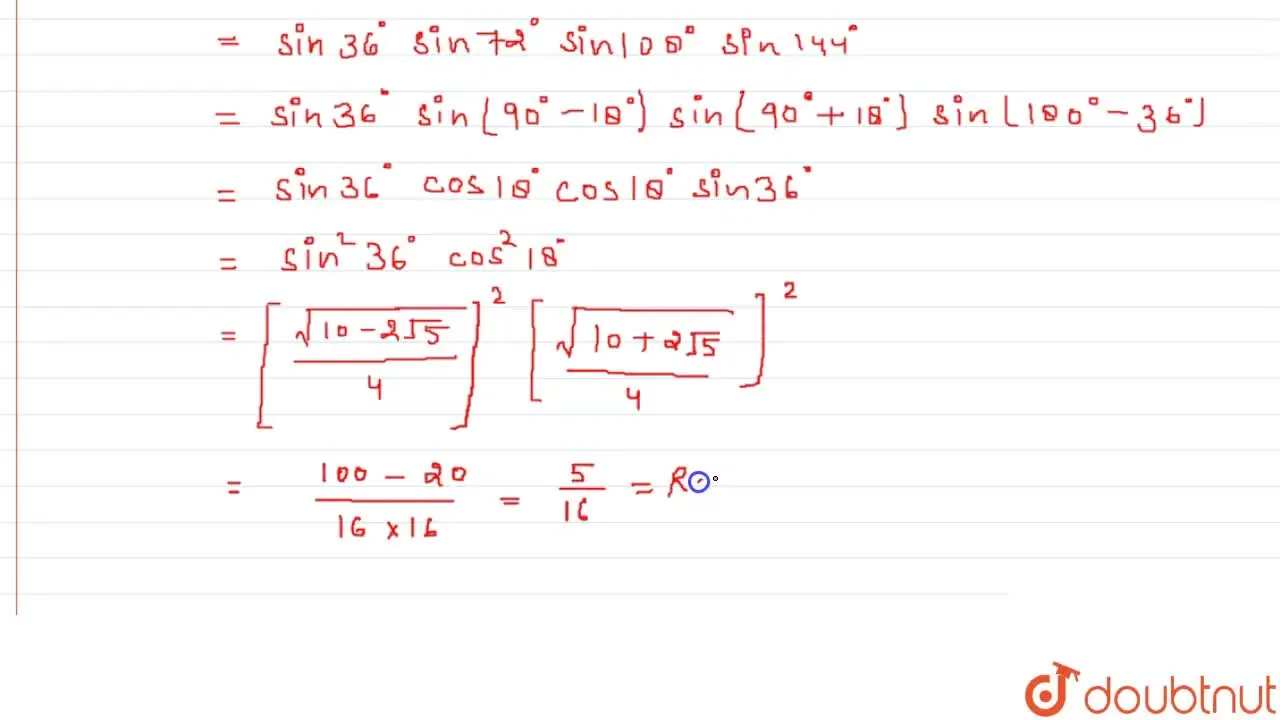 = sin 36° sin 72° sin 108° sin 144°
= sin 36° sin (90° - 18°) sin (90° + 18°) sin (180° - 36°)
= sin 36° cos 18° cos 18° sin 36°
= sin² 36° cos² 18°
= [√(10 - 2√5) / 4]² [√(10 + 2√5) / 4]²
= (100 - 20) / (16 × 16) = 5/16 = R
doubtnut